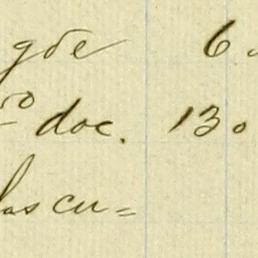 gde 6
ro doc. 130
las cu=